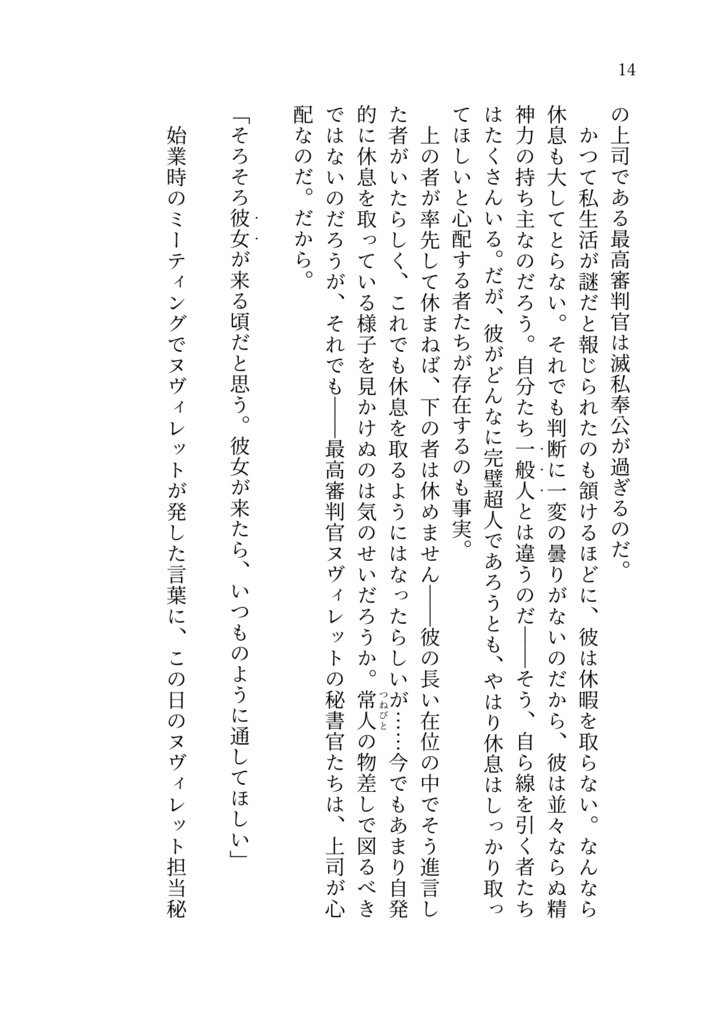 14
の上司である最高審判官は滅私奉公が過ぎるのだ。
かつて私生活が謎だと報じられたのも頷けるほどに、彼は休暇を取らない。なんなら
休息も大してとらない。それでも判断に一変の曇りがないのだから、彼は並々ならぬ精
神力の持ち主なのだろう。自分たち一般人とは違うのだ――そう、自ら線を引く者たち
はたくさんいる。だが、彼がどんなに完璧超人であろうとも、やはり休息はしっかり取っ
てほしいと心配する者たちが存在するのも事実。
上の者が率先して休まねば、下の者は休めません――彼の長い在位の中でそう進言し
た者がいたらしく、これでも休息を取るようにはなったらしいが……今でもあまり自発
的に休息を取っている様子を見かけぬのは気のせいだろうか。常人つねびとの物差しで図るべき
ではないのだろうが、それでも――最高審判官ヌヴィレットの秘書官たちは、上司が心
配なのだ。だから。
「そろそろ彼女が来る頃だと思う。彼女が来たら、いつものように通してほしい」
始業時のミーティングでヌヴィレットが発した言葉に、この日のヌヴィレット担当秘